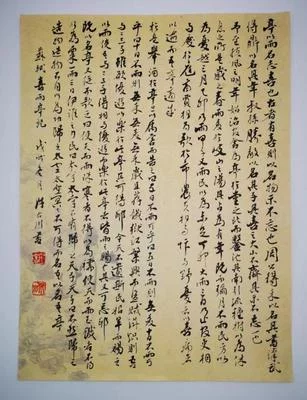 亭以雨名志喜也古者有喜則以名物示不忘也周公得禾以名其書漢武
得鼎以名其年叔孫勝狄以名其子其喜之大小不齊其示不忘一也
予至扶風之明年始治官舍為亭於堂之北而鑿池其南引流種樹以為休
息之所是歲之春雨麥於岐山之陽其占為有年既而彌月不雨民方以
為憂越三月乙卯乃雨甲子又雨民以為未足丁卯大雨三日乃止官吏相
與慶於庭商賈相與歌於市農夫相與忭於野憂者以喜病者
以愈而吾亭適成
於是舉酒於亭上以屬客而告之曰五日不雨可乎曰五日不雨則無麥十日不雨可
乎曰十日不雨則無禾無麥無禾歲且薦饑獄訟繁興而盜賊滋熾則吾
與二三子雖欲優游以樂於此亭其可得耶今天不遺斯民始旱而賜之
以雨使吾與二三子得相與優游以樂於此亭者皆雨之賜也其又可忘耶
既以名亭又從而歌之曰使天而雨珠寒者不得以為襦使天而雨玉饑者不得
以為粟一雨三日伊誰之力民曰太守太守不有歸之天子天子曰不然歸之
造物造物不自以為功歸之太空太空冥冥不可得而名吾以名吾亭
蘇軾喜雨亭記 戊戌 月 川書